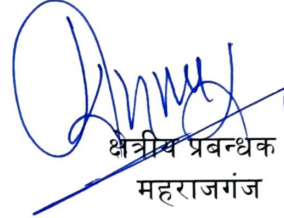 क्षेत्रीय प्रबन्धक
महराजगंज